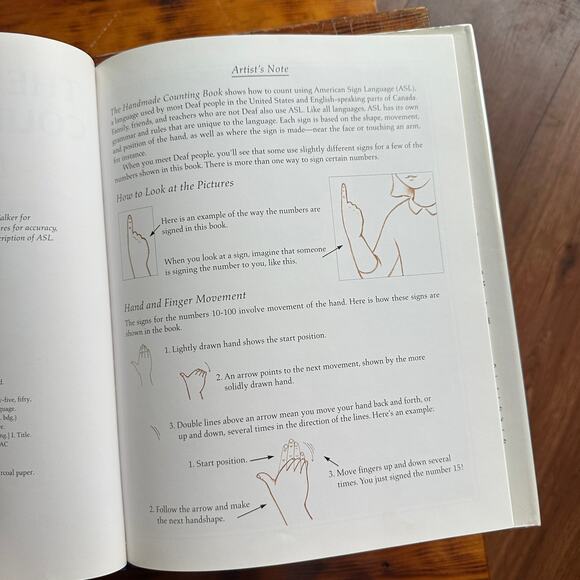 Artist's Note
The Handmade Counting Book shows how to count using American Sign Language (ASL),
a language used by most Deaf people in the United States and English-speaking parts of Canada.
Family, friends, and teachers who are not Deaf also use ASL. Like all languages, ASL has its own
grammar and rules that are unique to the language. Each sign is based on the shape, movement,
and position of the hand, as well as where the sign is made—near the face or touching an arm,
for instance.
When you meet Deaf people, you'll see that some use slightly different signs for a few of the
numbers shown in this book. There is more than one way to sign certain numbers.
How to Look at the Pictures
Here is an example of the way the numbers are
signed in this book.
When you look at a sign, imagine that someone
is signing the number to you, like this.
Hand and Finger Movement
The signs for the numbers 10-100 involve movement of the hand. Here is how these signs are
shown in the book.
1. Lightly drawn hand shows the start position.
2. An arrow points to the next movement, shown by the more
solidly drawn hand.
3. Double lines above an arrow mean you move your hand back and forth, or
up and down, several times in the direction of the lines. Here's an example:
1. Start position.
3. Move fingers up and down several
times. You just signed the number 15!
2. Follow the arrow and make
the next handshape.
alker for
res for accuracy,
cription of ASL.
d.
y-five, fifty,
guage.
. bdg.)
e.
ng.] I. Title.
AC
rcoal paper.